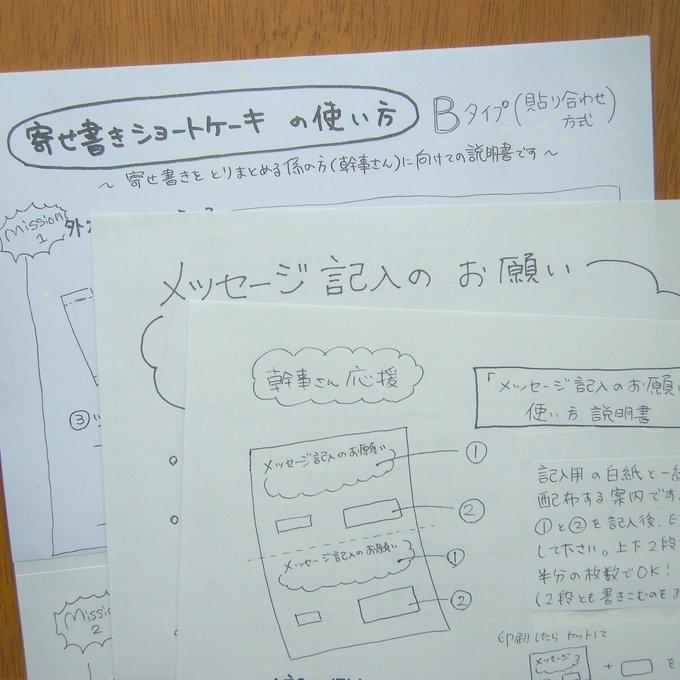 寄せ書きショートケーキ の使い方
Bタイプ(貼り合わせ
方式)
～ 寄せ書きを とりまとめる 係の方(幹事さん)に向けての説明書です ～
Mission
1
外
③
Mission
2
メッセージ記入の お願い
幹事さん応援
「メッセージ記入のお願い
使い方 説明書
メッセージ記入のお願い
①
②
メッセージ記入のお願い
①
②
記入用の白紙と一緒
配布する案内です
①と②を記入後、
して下さい。上下2段
半分の枚数でOK!
(2段とも書きこむのを
印刷したら カットして
メッセージ
+
を